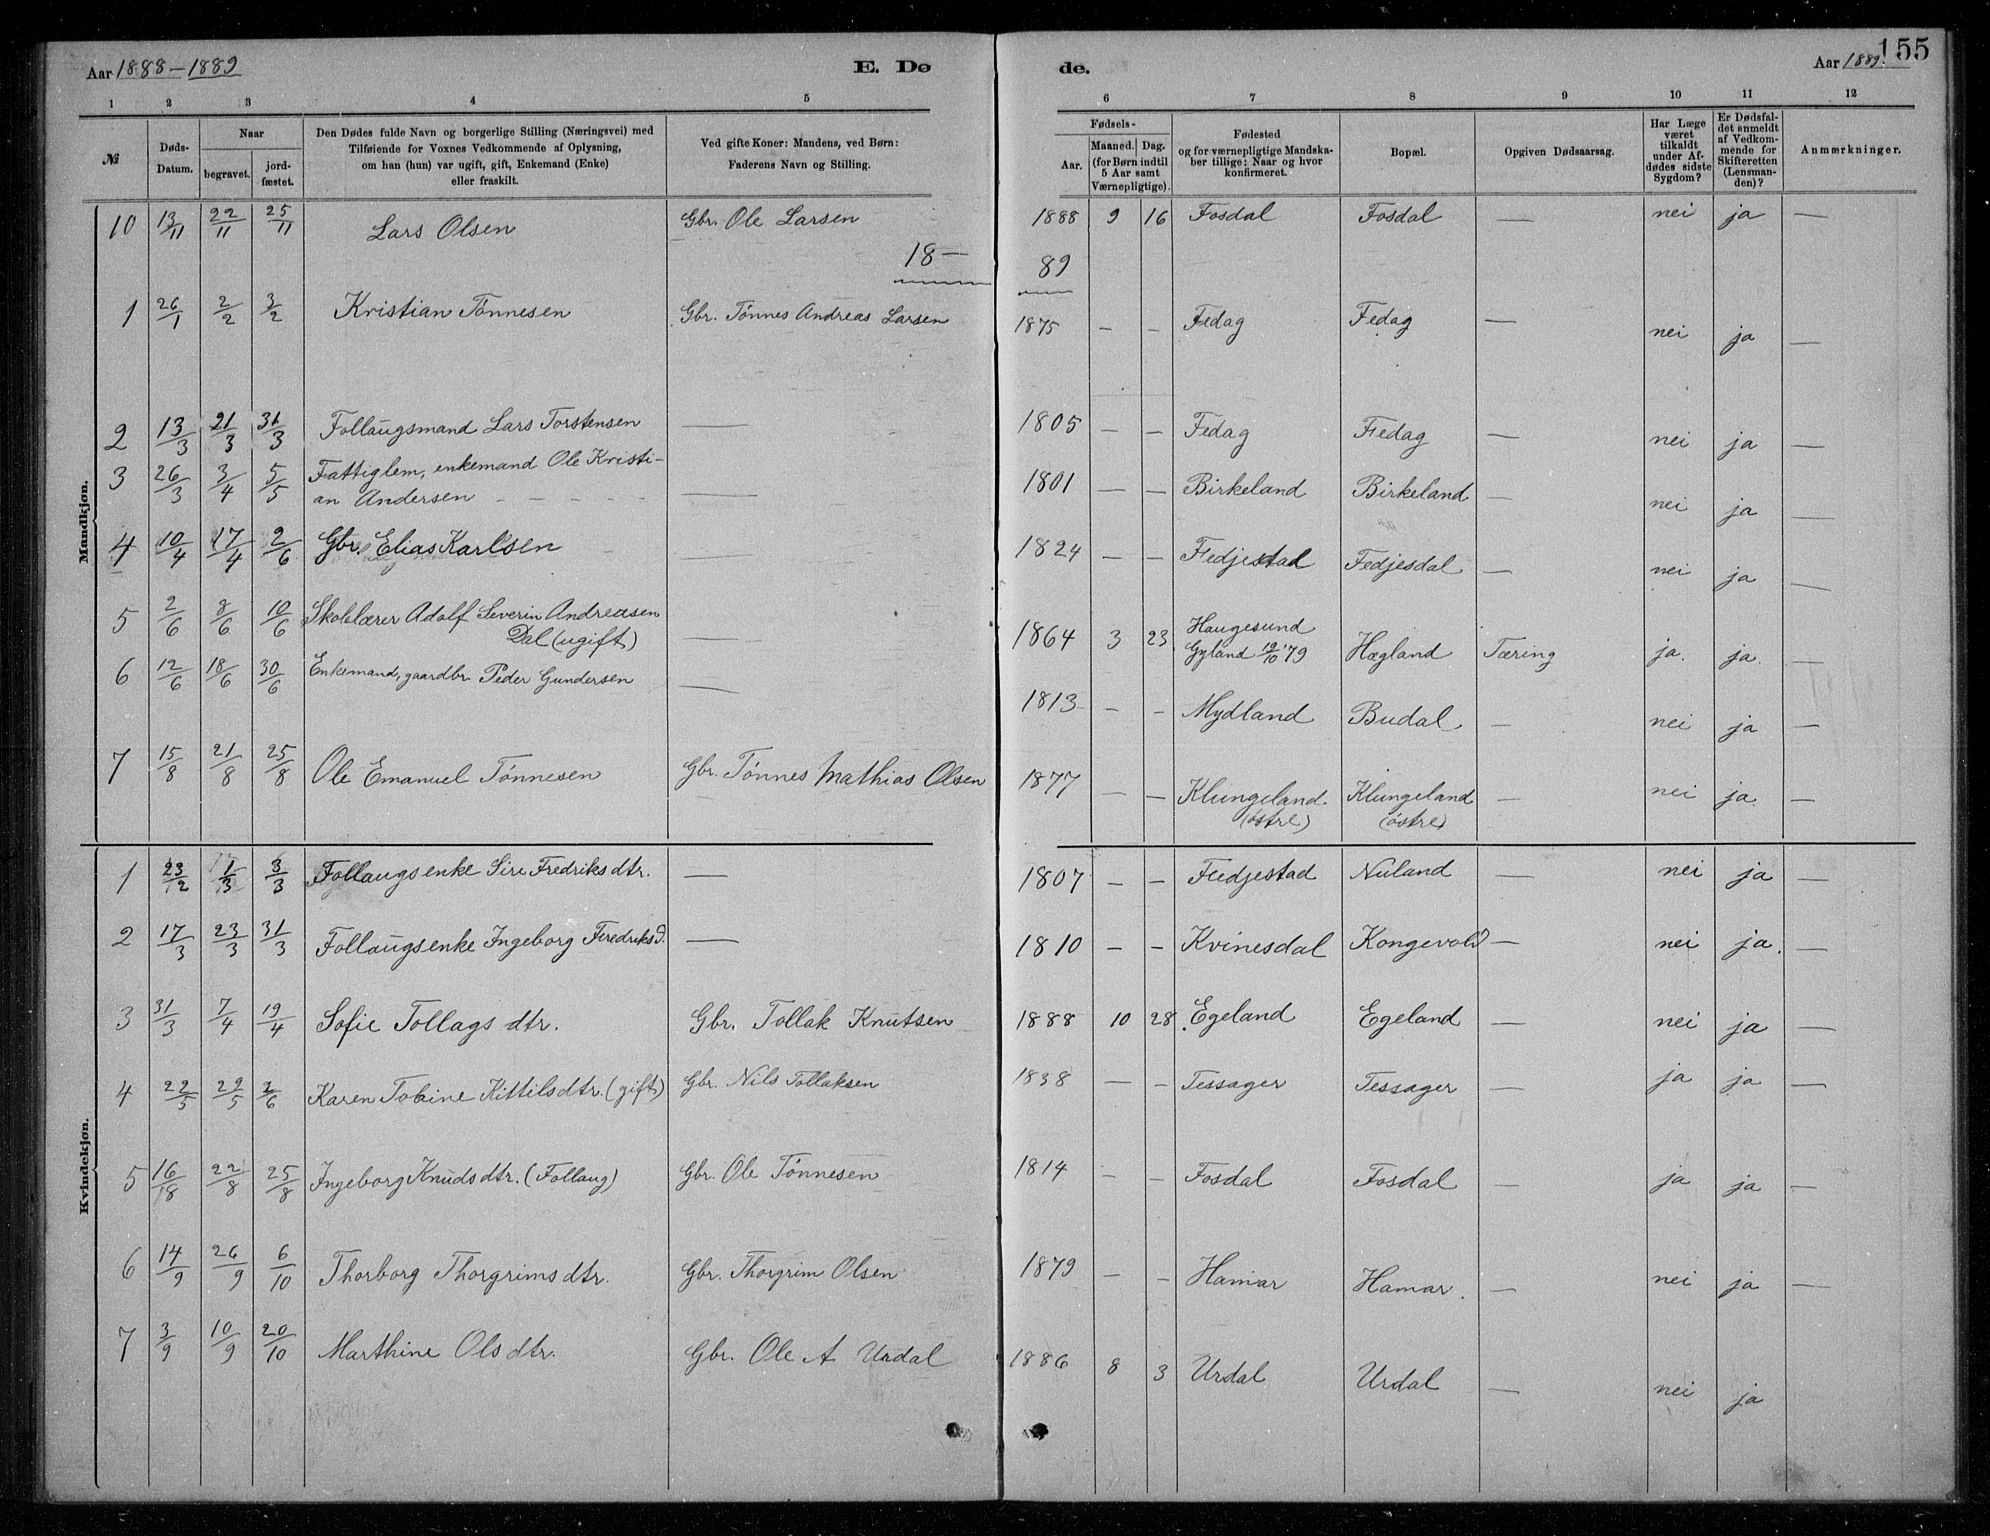 Aar 1888-1889
E. Dø
de.
Aar 1889.
155
1 2 3 4 5 6 7 8 9 10 11 12
№
Døds-
Datum.
Naar
begravet.
jord-
fæstet.
Den Dødes fulde Navn og borgerlige Stilling (Næringsvei) med
Tilføiende for Voxnes Vedkommende af Oplysning,
om han (hun) var ugift, gift, Enkemand (Enke)
eller fraskilt.
Ved gifte Koner: Mandens, ved Børn:
Faderens Navn og Stilling.
Fødsels-
Aar.
Maaned. Dag.
(for Børn indtil
5 Aar samt
Værnepligtige).
Fødested
og for værnepligtige Mandska-
ber tillige: Naar og hvor
konfirmeret.
Bopæl.
Opgiven Dødsaarsag.
Har Læge
været
tilkaldt
under Af-
dødes sidste
Sygdom?
Er Dødsfal-
det anmeldt
af Vedkom-
mende for
Skifteretten
(Lensman-
den)?
Anmærkninger.
Mandkjøn.
10 13/11 22/11 25/11 Lars Olsen Gbr. Ole Larsen 1888 9 16 Fosdal Fosdal — nei ja —
18— 89
1 26/1 2/2 3/2 Kristian Tönnesen Gbr. Tönnes Andreas Larsen 1875 — — Fedag Fedag — nei ja —
2 13/3 21/3 31/3 Follaugsmand Lars Torstensen — 1805 — — Fedag Fedag — nei ja —
3 26/3 3/4 5/5 Fattiglem, enkemand Ole Kristi-
an Andersen — 1801 — — Birkeland Birkeland — nei ja —
4 10/4 17/4 2/6 Gbr. Elias Karlsen 1824 — — Fedjestad Fedjesdal — nei ja —
5 2/6 8/6 10/6 Skolelærer Adolf Severin Andreasen
Dal (ugift) — 1864 3 23 Haugesund
Gyland 19/10 '79 Hægland Tæring ja. ja.
6 12/6 18/6 30/6 Enkemand, gaardbr. Peder Gundersen — 1813 — — Mydland Budal — nei ja —
7 15/8 21/8 25/8 Ole Emanuel Tönnesen Gbr. Tönnes Mathias Olsen 1877 — — Klungeland. Klungeland — nei ja —
(østre) (østre)
Kvindekjøn.
1 23/2 1/3 3/3 Follaugsenke Siri Fredriksdtr. — 1807 — — Fedjestad Nuland — nei ja —
2 17/3 23/3 31/3 Follaugsenke Ingeborg Fredriksd. — 1810 — — Kvinesdal Kongevold — nei ja. —
3 31/3 7/4 19/4 Sofie Tollagsdtr. Gbr. Tollak Knutsen 1888 10 28 Egeland Egeland — nei ja —
4 22/5 29/5 2/6 Karen Tobine Kittilsdtr. (gift) Gbr. Nils Tollaksen 1838 — — Tessager Tessager — ja ja —
5 16/8 22/8 25/8 Ingeborg Knudsdtr. (Follaug) Gbr. Ole Tönnesen 1814 — — Fosdal Fosdal — ja ja —
6 14/9 26/9 6/10 Thorborg Thorgrimsdtr. Gbr. Thorgrim Olsen 1879 — — Hamar Hamar. — nei ja —
7 3/9 10/9 20/10 Marthine Olsdtr. Gbr. Ole A Urdal 1886 8 3 Urdal Urdal — nei ja